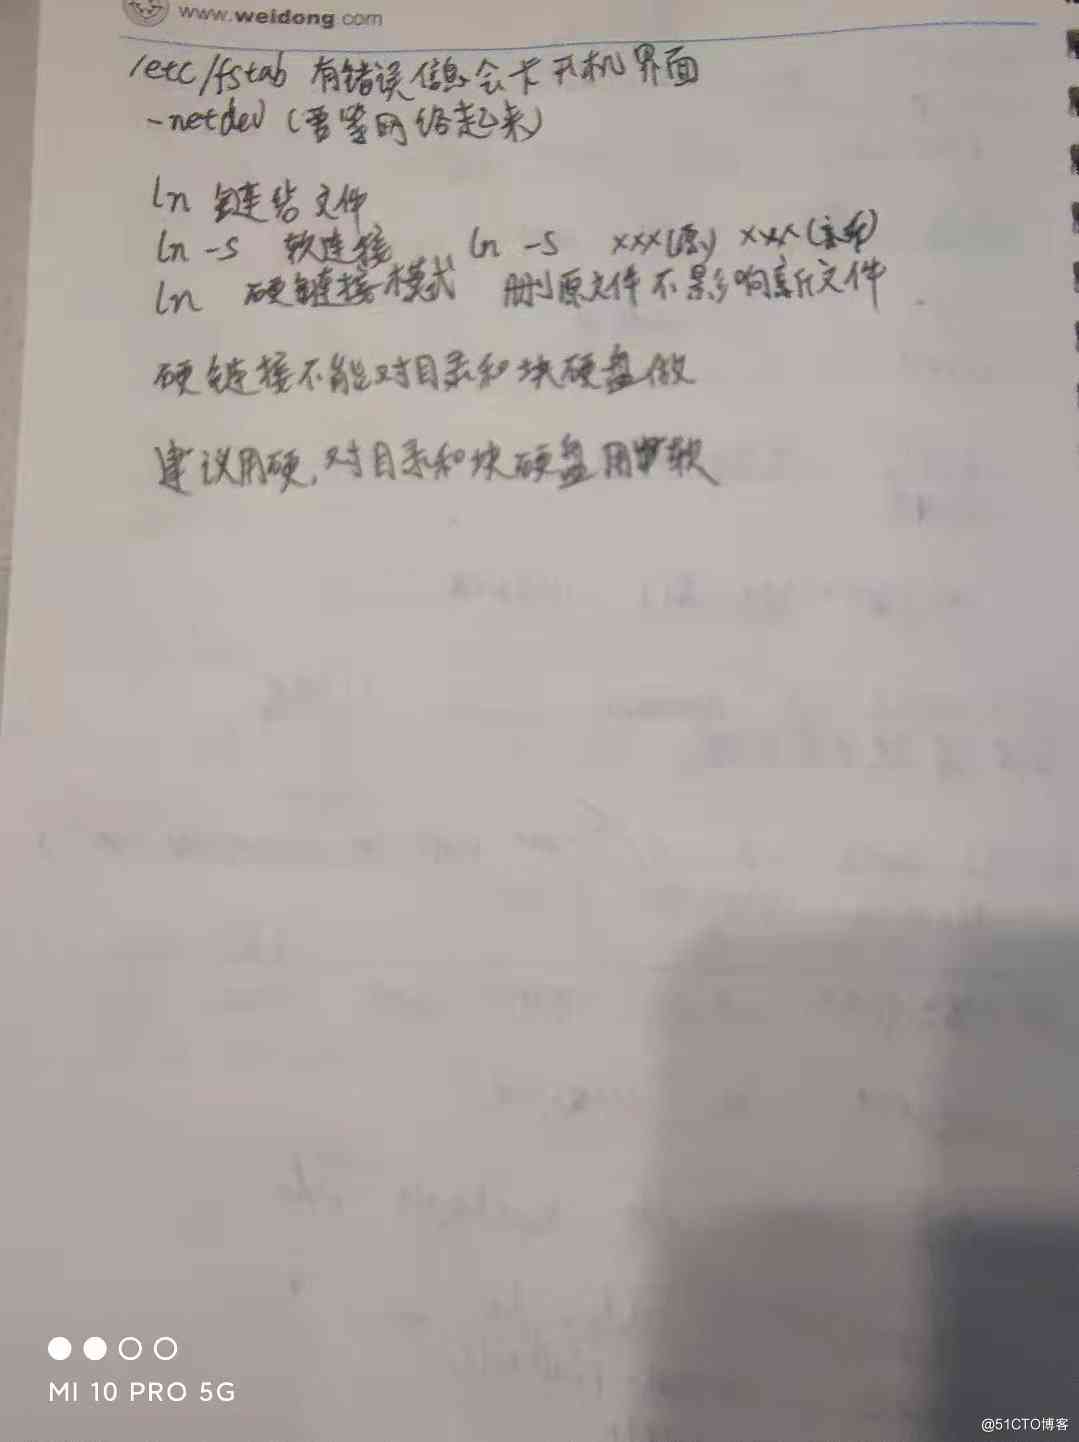 www.weidong.com
/etc/fstab 有错误信息会卡开机界面
-netdev (要等网络起来)
ln 链结文件
ln -s 软连接 ln -s xxx(原) xxx(新)
ln 硬链接模式 删原文件不影响新文件
硬链接不能对目录和块硬盘做
建议用硬,对目录和块硬盘用软
MI 10 PRO 5G
@51CTO博客